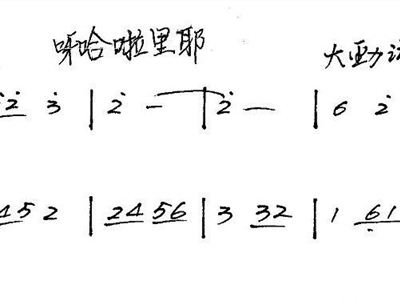 呀哈啦里耶 大
2̇ 3̇ | 2̇ - | 2̇ — | 6 2̇
4 5 2 | 2 4 5 6 | 3 3 2 | 1 6̣ 1